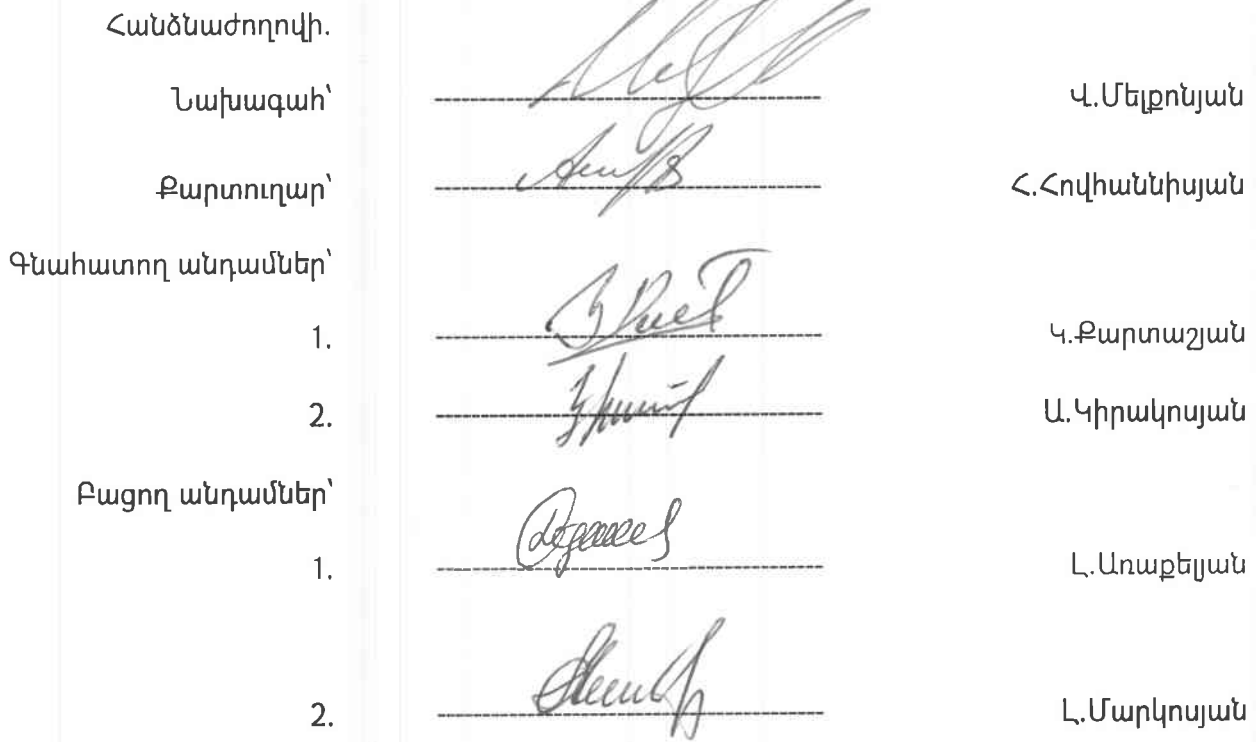 Հանձնաժողովի.
Նախագահ՝ Վ.Մելքոնյան
Քարտուղար՝ Հ.Հովհաննիսյան
Գնահատող անդամներ՝
1. Կ.Քարտաշյան
2. Ա.Կիրակոսյան
Բացող անդամներ՝
1. Լ.Առաքելյան
2. Լ.Մարկոսյան